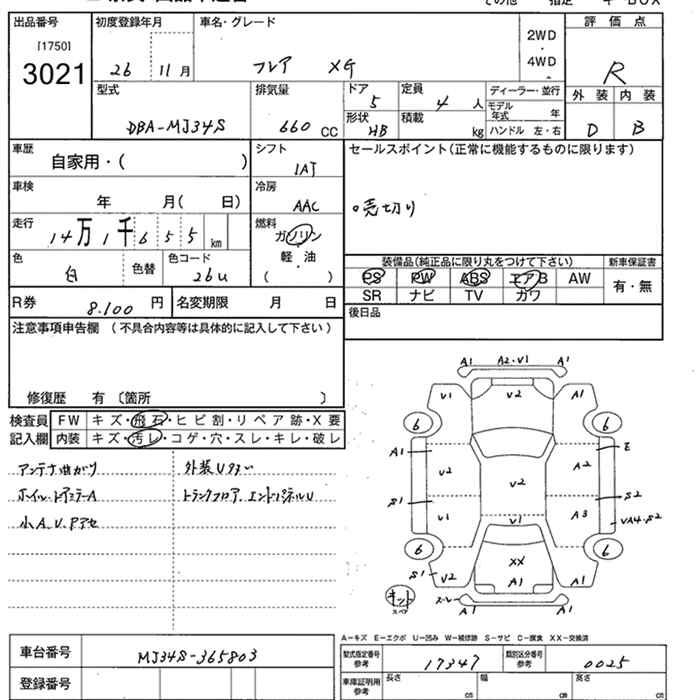 出品番号 初度登録年月 車名・グレード 評価点
[1750]
3021
26 11月 フレア XG
2WD
・
4WD
R
型式 排気量 ドア 定員 ディーラー・並行 外装 内装
DBA-MJ34S 660 CC 5 4 人 モデル年式 年
形状 積載 ハンドル 左・右
HB kg
D B
車歴 シフト セールスポイント(正常に機能するものに限ります)
自家用・( ) IAT
車検 冷房
年 月( 日) AAC
。売切り
走行 燃料
14万1千655km ガソリン
軽・油
( )
色 色替 色コード
白 26U
装備品(純正品に限り丸をつけて下さい) 新車保証書
PS PW ABS エアB AW 有・無
SR ナビ TV カワ
R券 8,100 円 名変期限 月 日
後日品
注意事項申告欄 (不具合内容等は具体的に記入して下さい)
修復歴 有〔箇所 〕
検査員 FW キズ・飛石・ヒビ割・リペア跡・X要
記入欄 内装 キズ・汚レ・コゲ・穴・スレ・キレ・破レ
アンテナ曲がり 外装Uキズ
トランクフロア、エンドパネルU
小A.U.Pアセ
A1 A2・V1 A1
V1 V2 A1
6 6
A1 E
V2 V2 A2
S1 S2
V1 V1 A3 VA4・S2
6 6
XX
S1 V2 A1 A1
キット
スペア
スレ A1
A-キズ E-エクボ U-凹み W-補修跡 S-サビ C-腐食 XX-交換済
車台番号 MJ34S-365803
型式指定番号 参考 17347 類別区分番号 参考 0025
登録番号
車庫証明用 参考 長さ cm 幅 cm 高さ cm